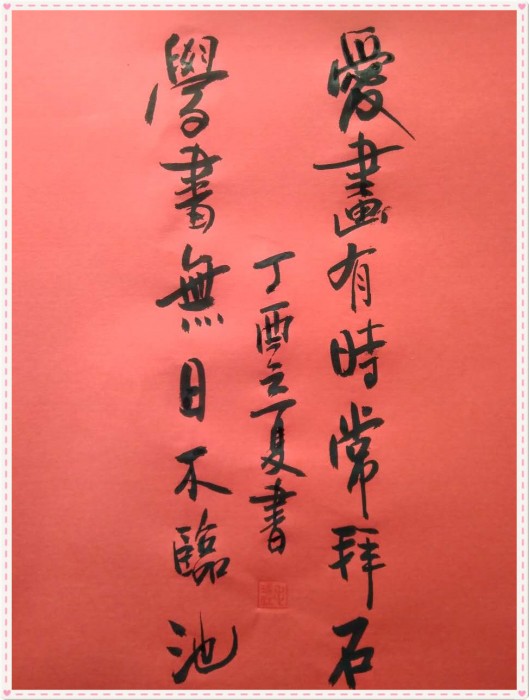 愛畫有時常拜石
丁酉立夏書
學書無日不臨池